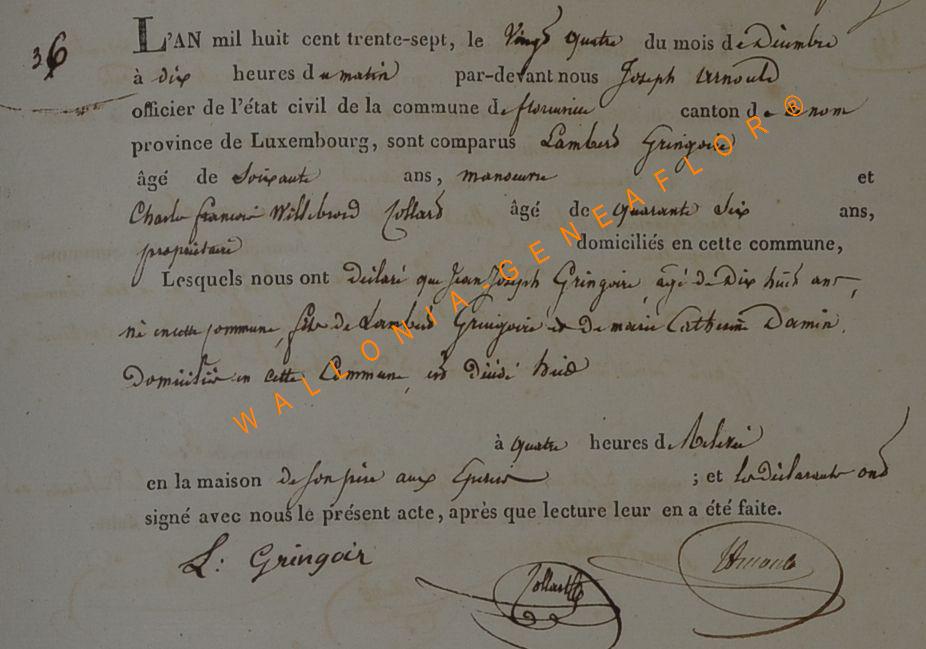 36
L'AN mil huit cent trente-sept, le Vingt quatre du mois de Décembre
à dix heures du matin par-devant nous Joseph Arnould
officier de l'état civil de la commune de florenville canton de ce nom
province de Luxembourg, sont comparus Lambert Gringoire
âgé de Soixante ans, manoeuvre et
Charles françois Willebrord Collard âgé de quarante Six ans,
propriétaire domiciliés en cette commune,
Lesquels nous ont déclaré que Jean Joseph Gringoire, agé de Dix huit ans,
né en cette commune, fils de Lambert Gringoire et de marie Catherine Damin,
Domicilié en cette Commune, est décédé hier
à quatre heures de Relevée
en la maison de son père aux ; et les déclarants ont
signé avec nous le présent acte, après que lecture leur en a été faite.
L: Gringoir
Collard
Arnould
WALLONIA-GENEAFLOR®